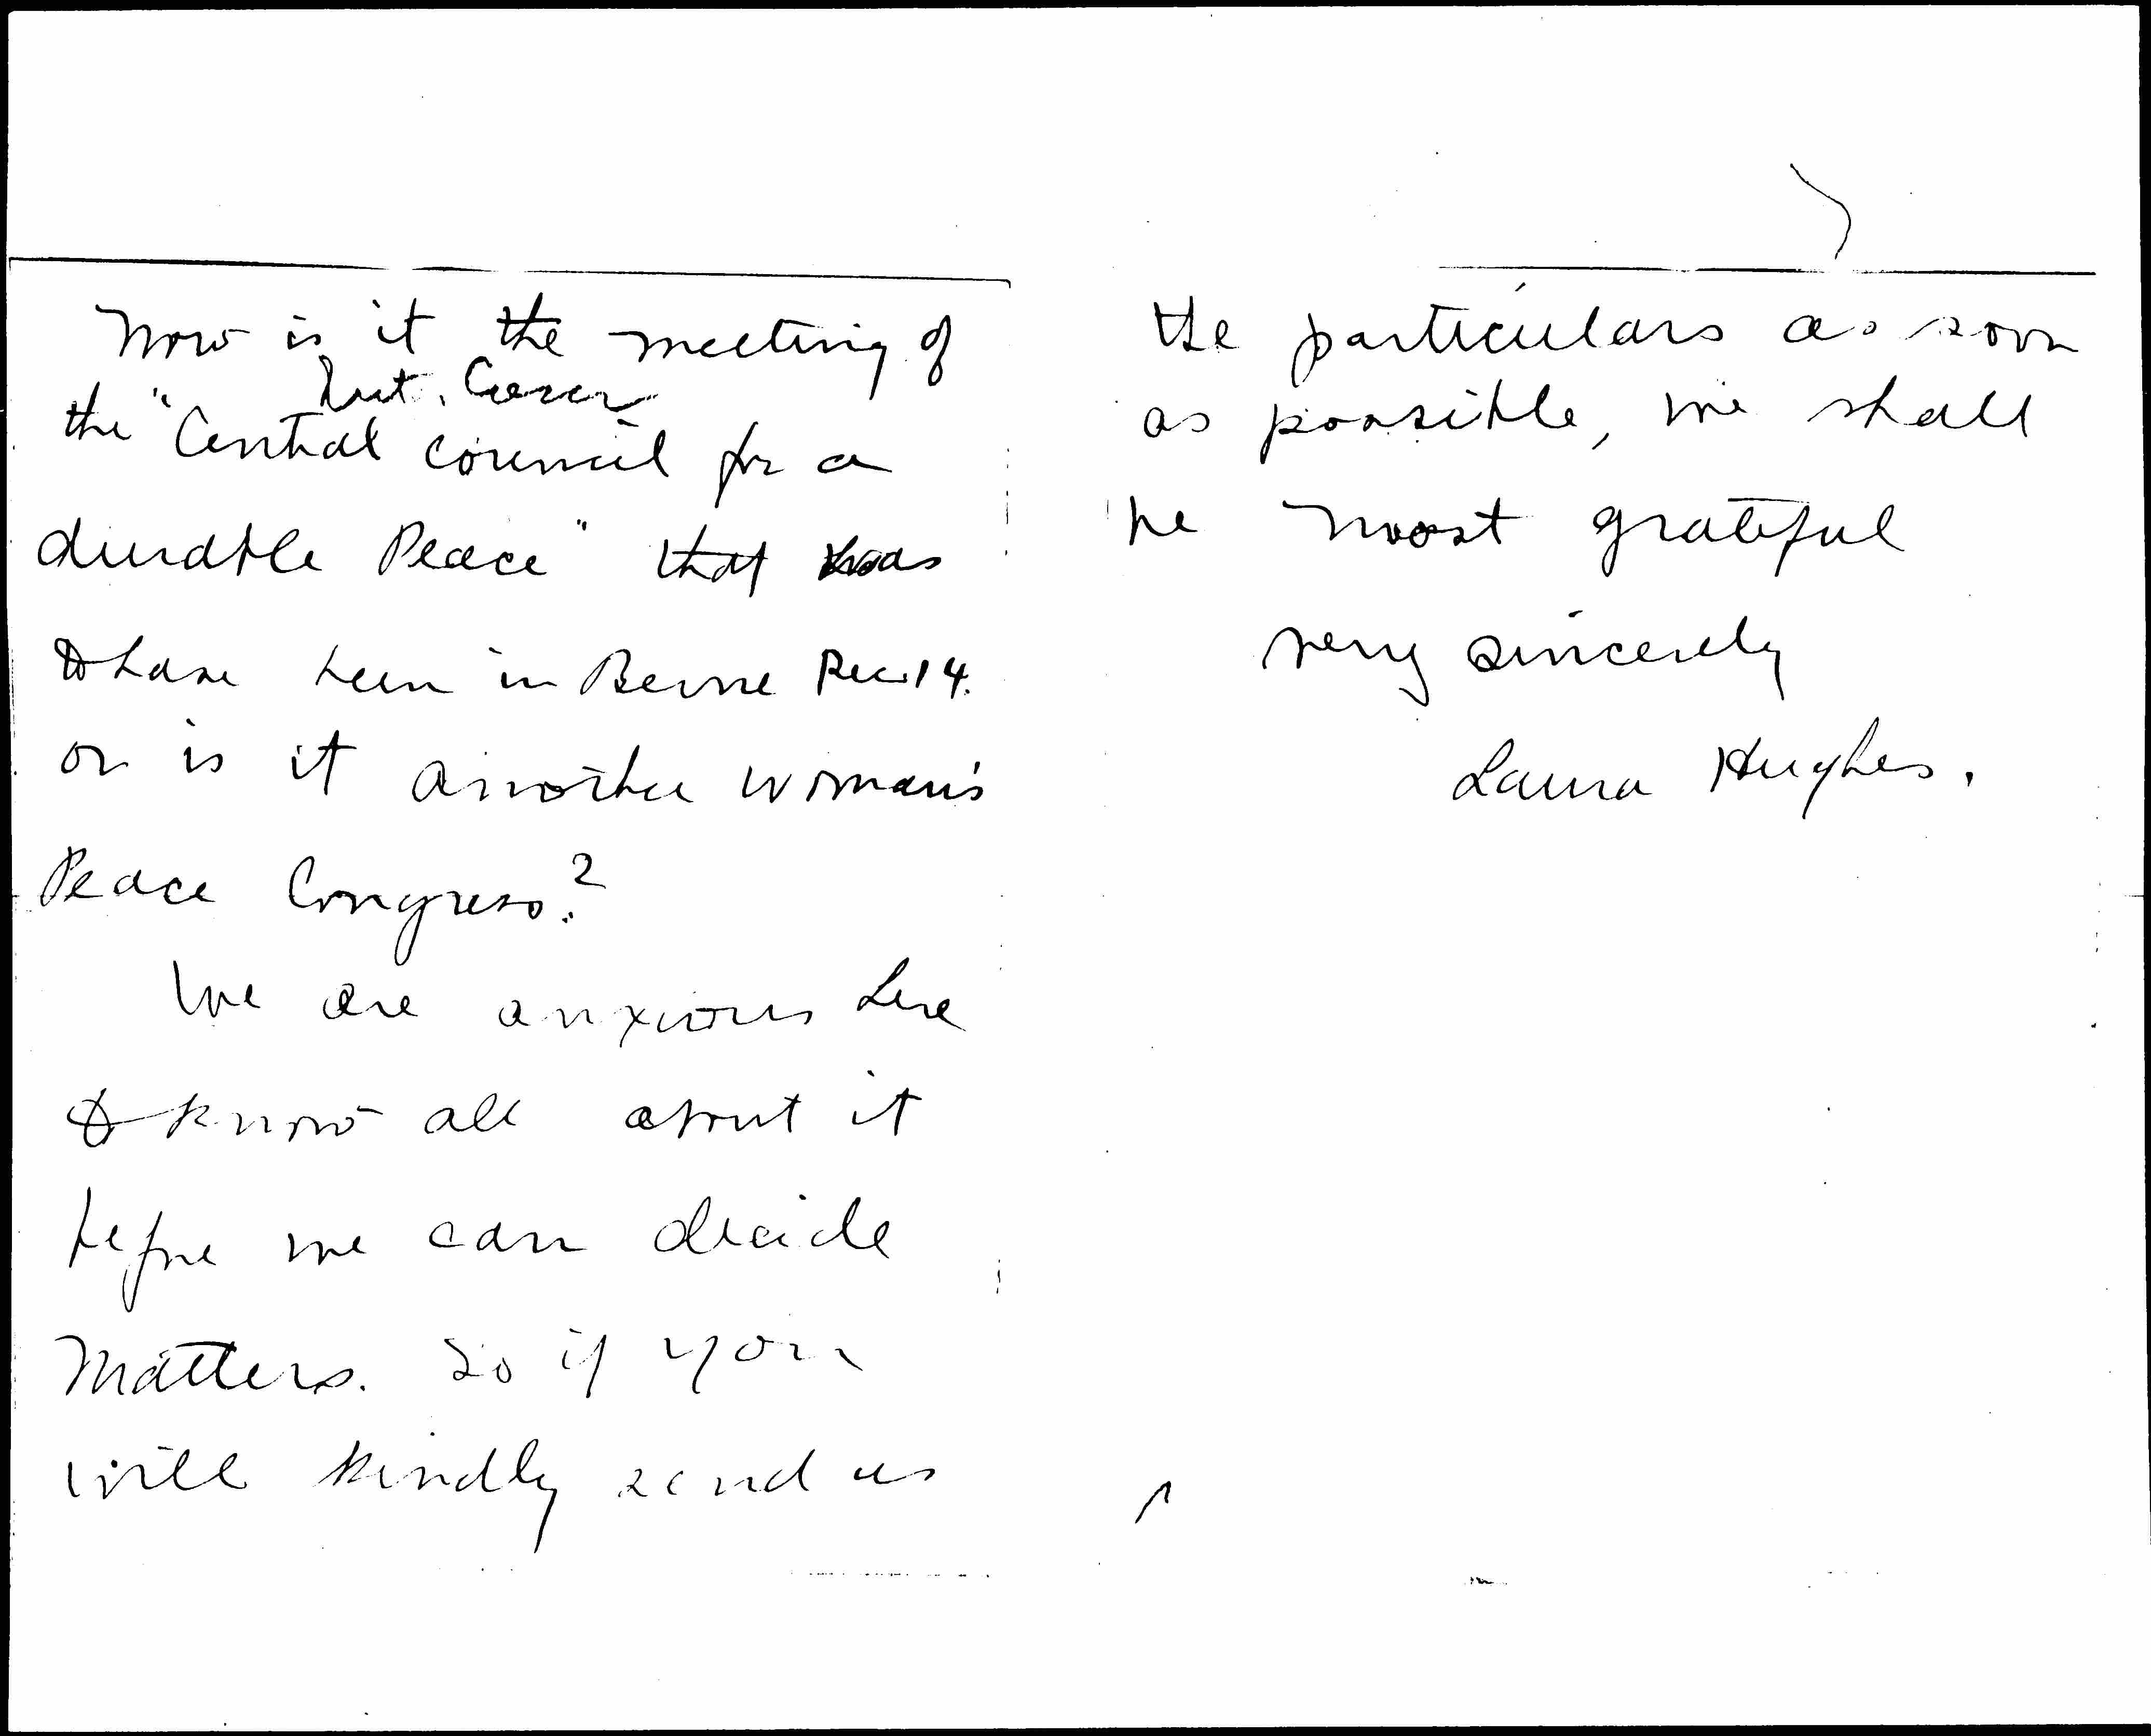 Now is it the meeting of
the "Central council for a
durable Peace" that was
to have been in Berne Dec. 14.
or is it another woman's
Peace Congress?
We are anxious here
to know all about it
before we can decide
matters. So if you
will kindly send us
the particulars as soon
as possible, we shall
be most grateful
very sincerely
Laura Hughes.